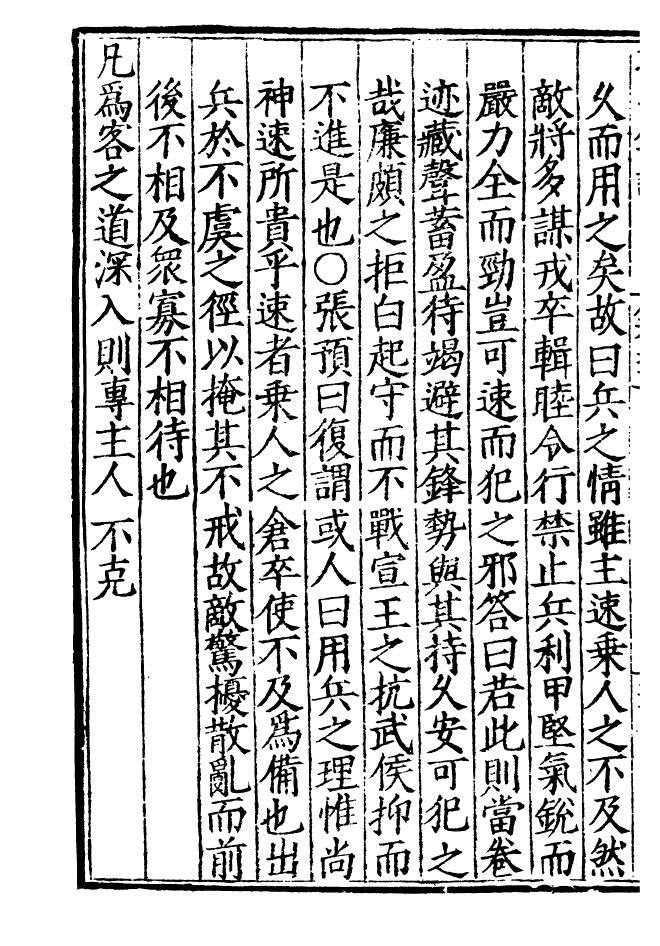 乆而用之矣故曰兵之情雖主速乗人之不及然
敵將多謀戎卒輯睦令行禁止兵利甲堅氣銳而
嚴力全而勁豈可速而犯之邪答曰若此則當卷
迹藏聲蓄盈待竭避其鋒勢與其持乆安可犯之
哉廉頗之拒白起守而不戰宣王之抗武侯抑而
不進是也○張預曰復謂或人曰用兵之理惟尚
神速所貴乎速者乗人之倉卒使不及爲備也出
兵於不虞之徑以掩其不戒故敵驚擾散亂而前
後不相及衆寡不相待也
凡爲客之道深入則專主人不克